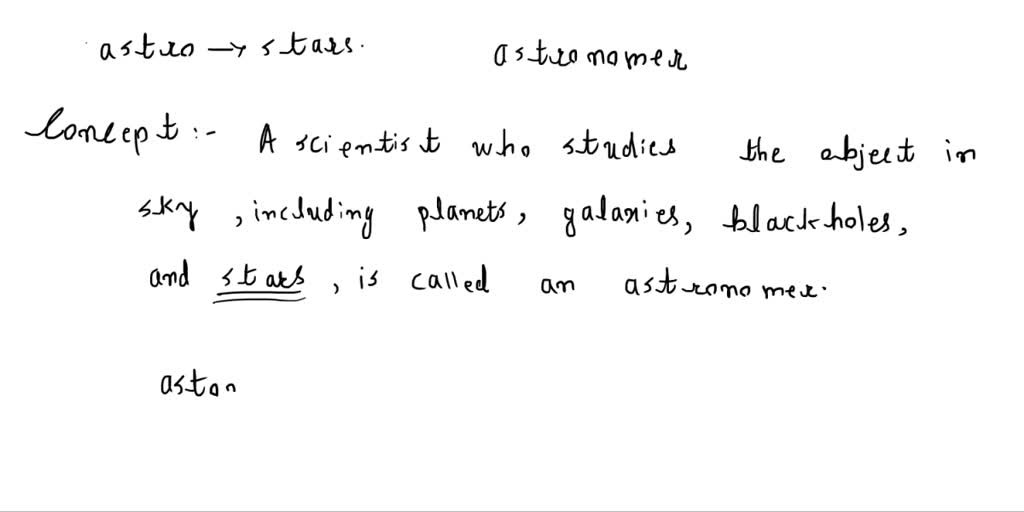 astro → stars.
astronomer
Concept :- A scientist who studies the object in
sky, including planets, galaxies, blackholes,
and stars, is called an astronomer.
aston